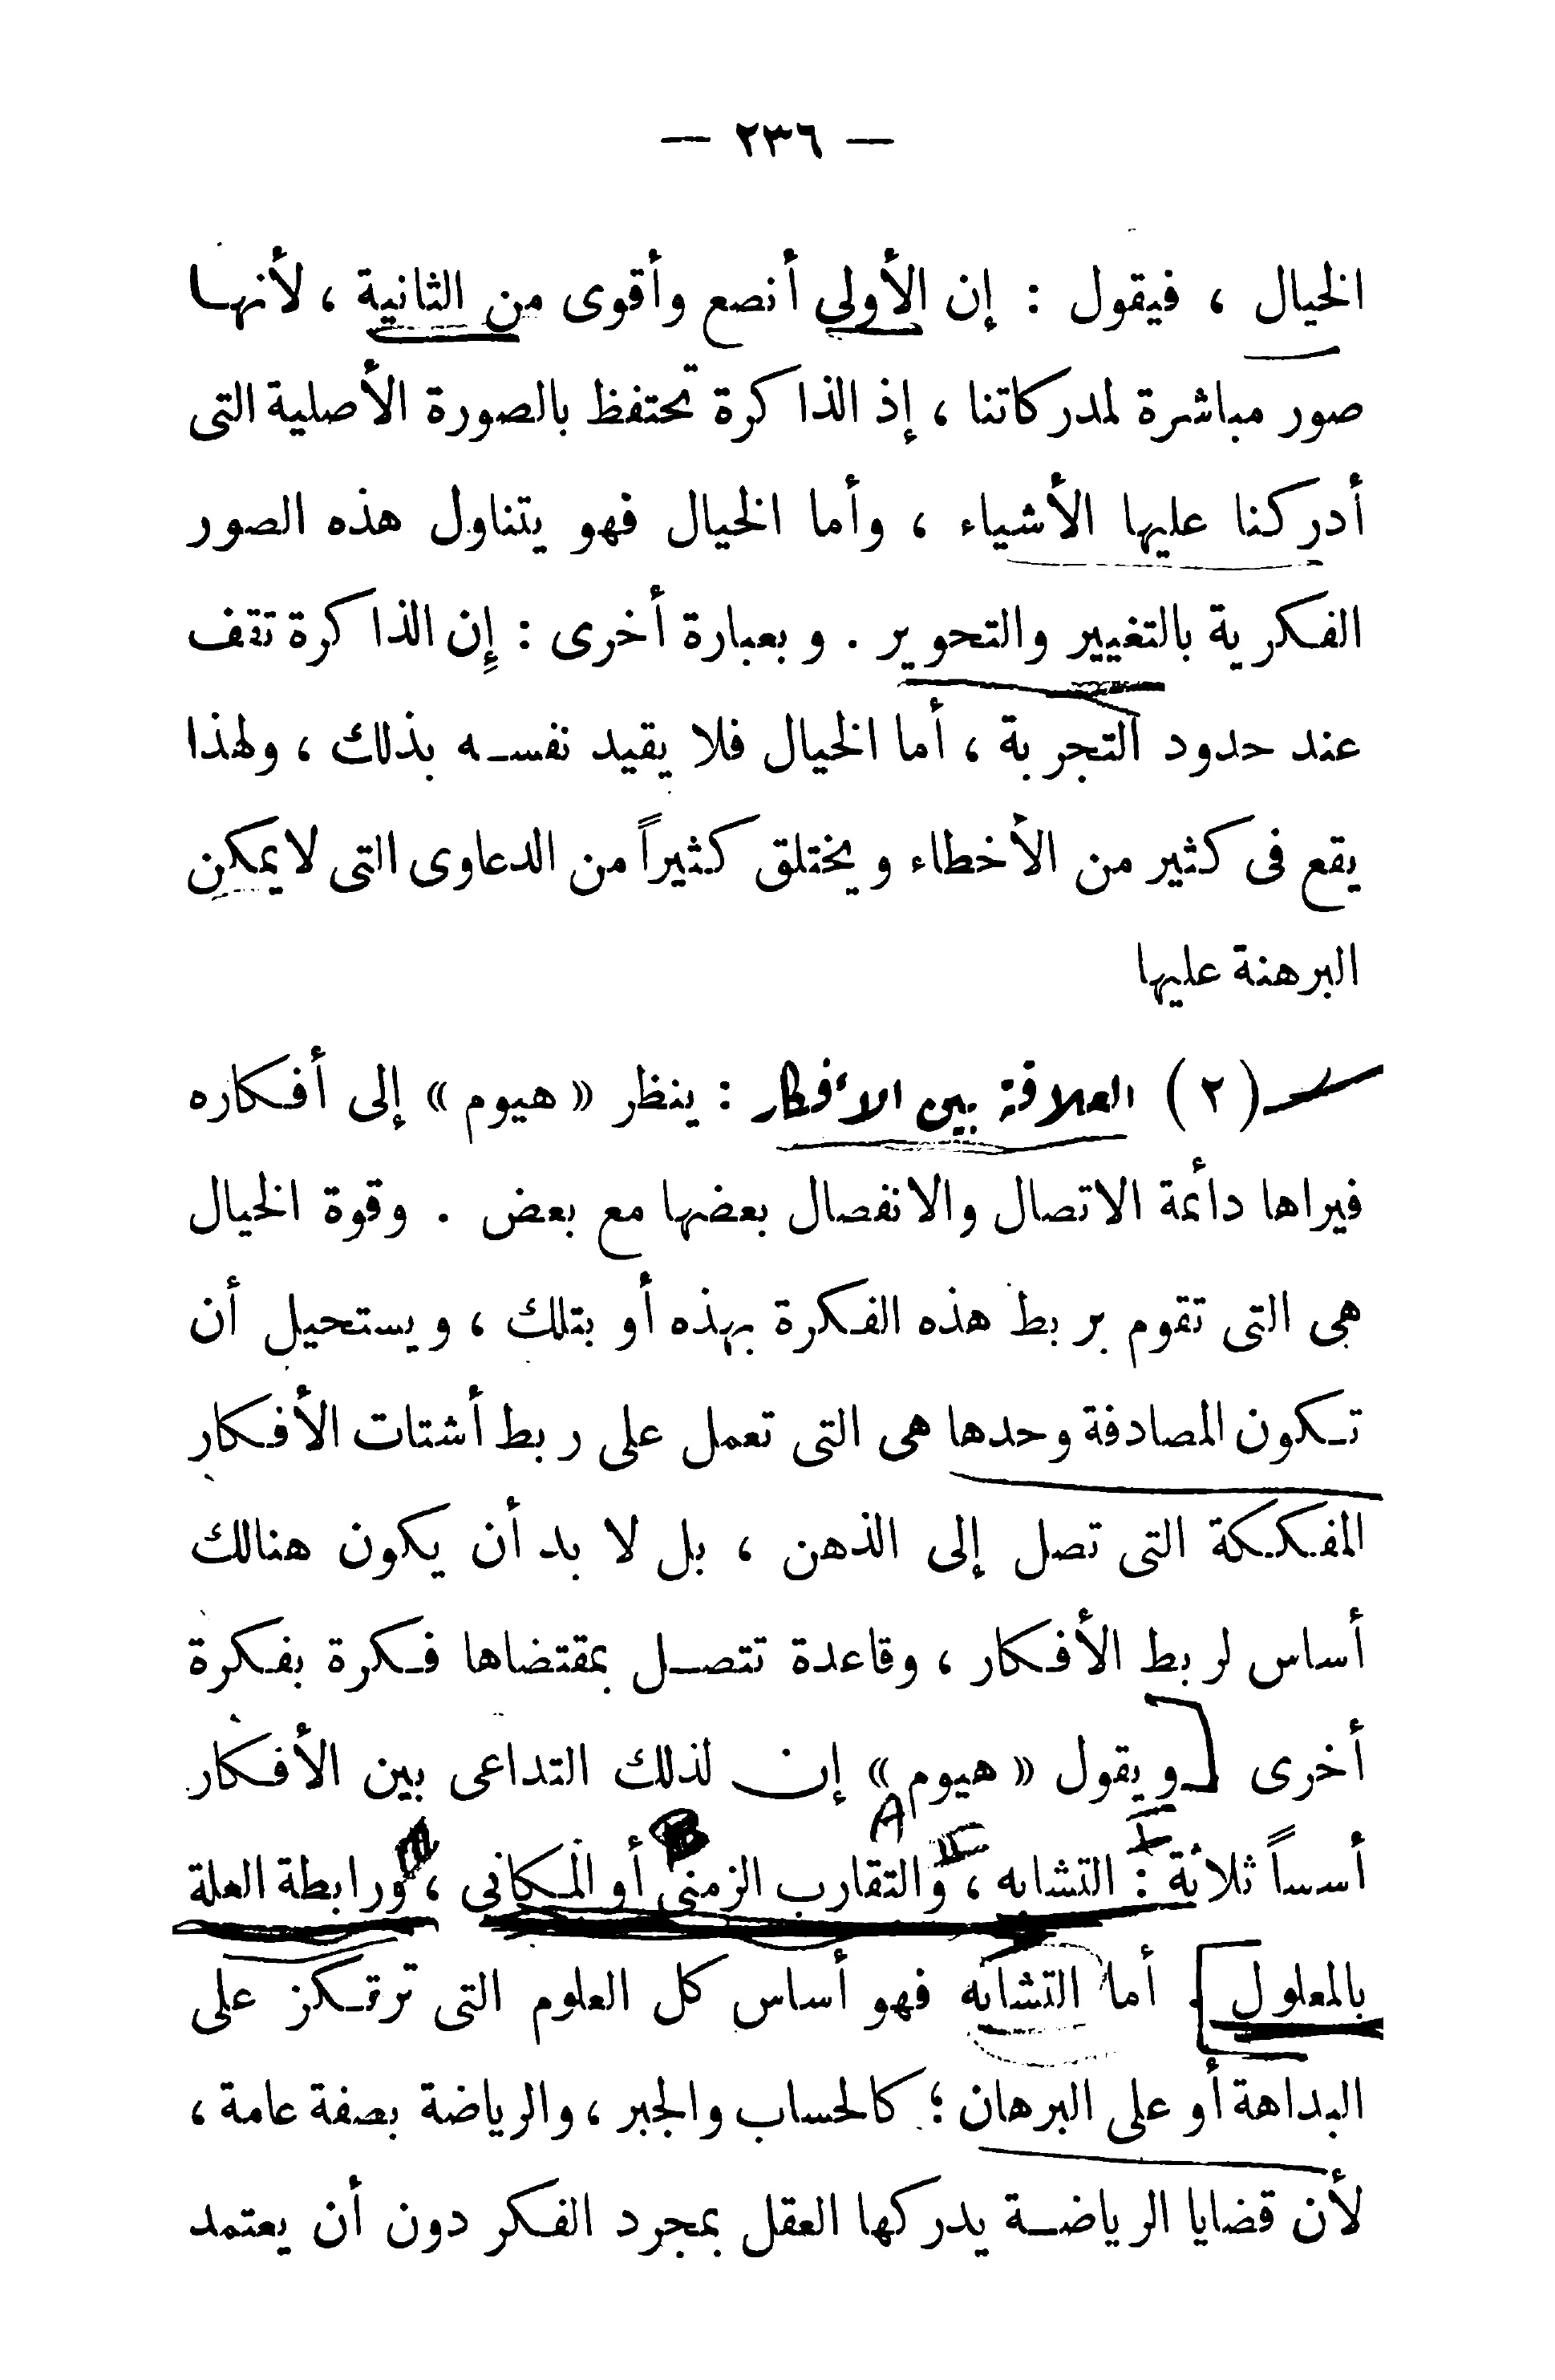 — ٢٣٦ —
الخيال ، فيقول : إن الأولى أنصع وأقوى من الثانية ، لأنها
صور مباشرة لمدركاتنا ، إذ الذاكرة تحتفظ بالصورة الأصلية التى
أدركنا عليها الأشياء ، وأما الخيال فهو يتناول هذه الصور
الفكرية بالتغيير والتحوير . وبعبارة أخرى : إن الذاكرة تقف
عند حدود التجربة ، أما الخيال فلا يقيد نفسه بذلك ، ولهذا
يقع فى كثير من الأخطاء ويختلق كثيراً من الدعاوى التى لا يمكن
البرهنة عليها
(٢) العلاقة بين الأفكار : ينظر « هيوم » إلى أفكاره
فيراها دائمة الاتصال والانفصال بعضها مع بعض . وقوة الخيال
هى التى تقوم بربط هذه الفكرة بهذه أو بتلك ، ويستحيل أن
تكون المصادفة وحدها هى التى تعمل على ربط أشتات الأفكار
المفككة التى تصل إلى الذهن ، بل لا بد أن يكون هنالك
أساس لربط الأفكار ، وقاعدة تتصل بمقتضاها فكرة بفكرة
أخرى [ ويقول « هيوم » إن لذلك التداعى بين الأفكار
A B
أسساً ثلاثة : التشابه ، والتقارب الزمنى أو المكانى ، ورابطة العلة
بالمعلول ] . أما التشابه فهو أساس كل العلوم التى ترتكز على
البداهة أو على البرهان ؛ كالحساب والجبر ، والرياضة بصفة عامة ،
لأن قضايا الرياضة يدركها العقل بمجرد الفكر دون أن يعتمد